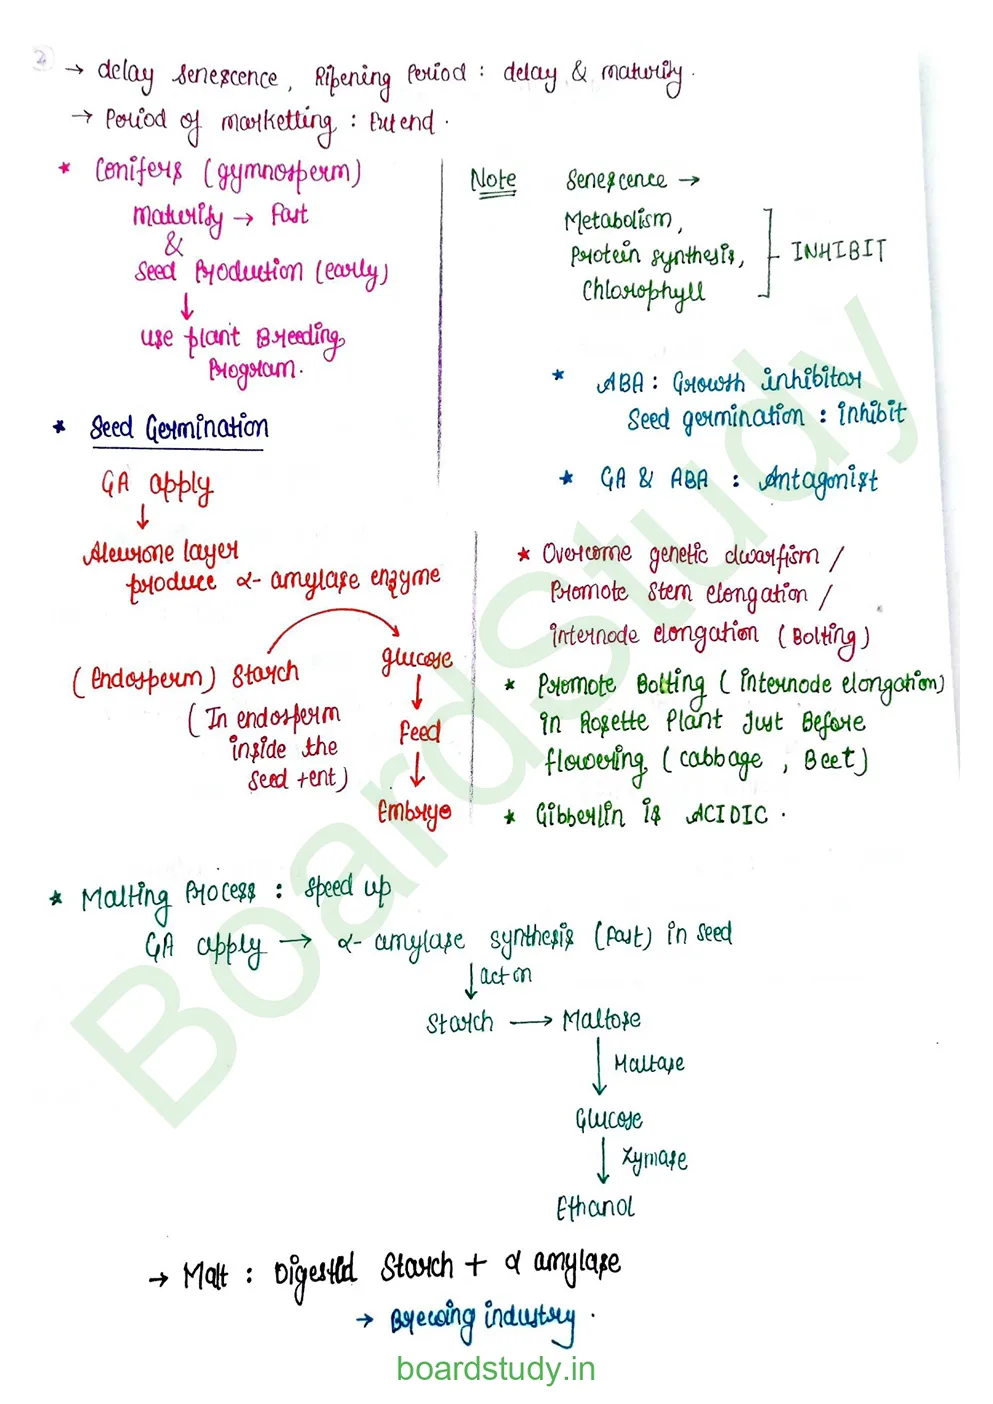 2
→ delay senescence, Ripening Period : delay & maturity.
→ Period of marketting : Extend.
* Conifers (gymnosperm)
Maturity → Fast
&
Seed Production (early)
↓
Use plant Breeding
Program.
Note Senescence →
Metabolism,
Protein synthesis,
Chlorophyll
INHIBIT
* ABA : Growth inhibitor
Seed germination : inhibit
* GA & ABA : Antagonist
* Seed Germination
GA apply
↓
Aleurone layer
produce α- amylase enzyme
(Endosperm) Starch
glucose
(In endosperm
inside the
seed +ent)
↓
Feed
↓
Embryo
* Overcome genetic dwarfism /
Promote Stem elongation /
internode elongation (Bolting)
* Promote Bolting (internode elongation)
in Rosette Plant Just Before
flowering (cabbage, Beet)
* Gibberlin is ACIDIC.
* Malting Process : Speed up
GA apply → α- amylase synthesis (Fast) in seed
↓ act on
Starch → Maltose
↓ Maltase
Glucose
↓ Zymase
Ethanol
→ Malt : Digested Starch + α amylase
→ Brewing industry.
BoardStudy
boardstudy.in